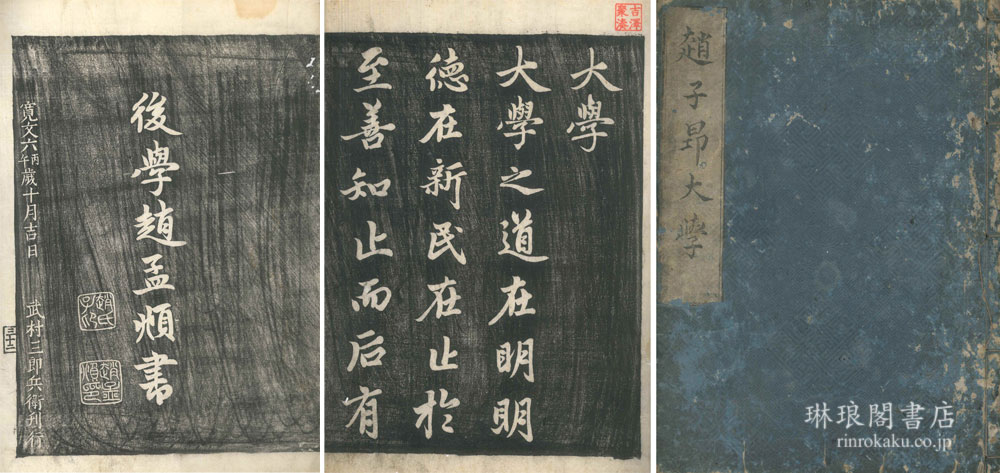 趙子昂。大學
大學
大學之道在明明
德在新民在止於
至善知止而后有
後學趙孟頫書
趙氏子昂
趙孟頫印
寛文六丙午歲十月吉日　武村三郎兵衛刊行
三十二
琳琅閣書店
rinrokaku.co.jp